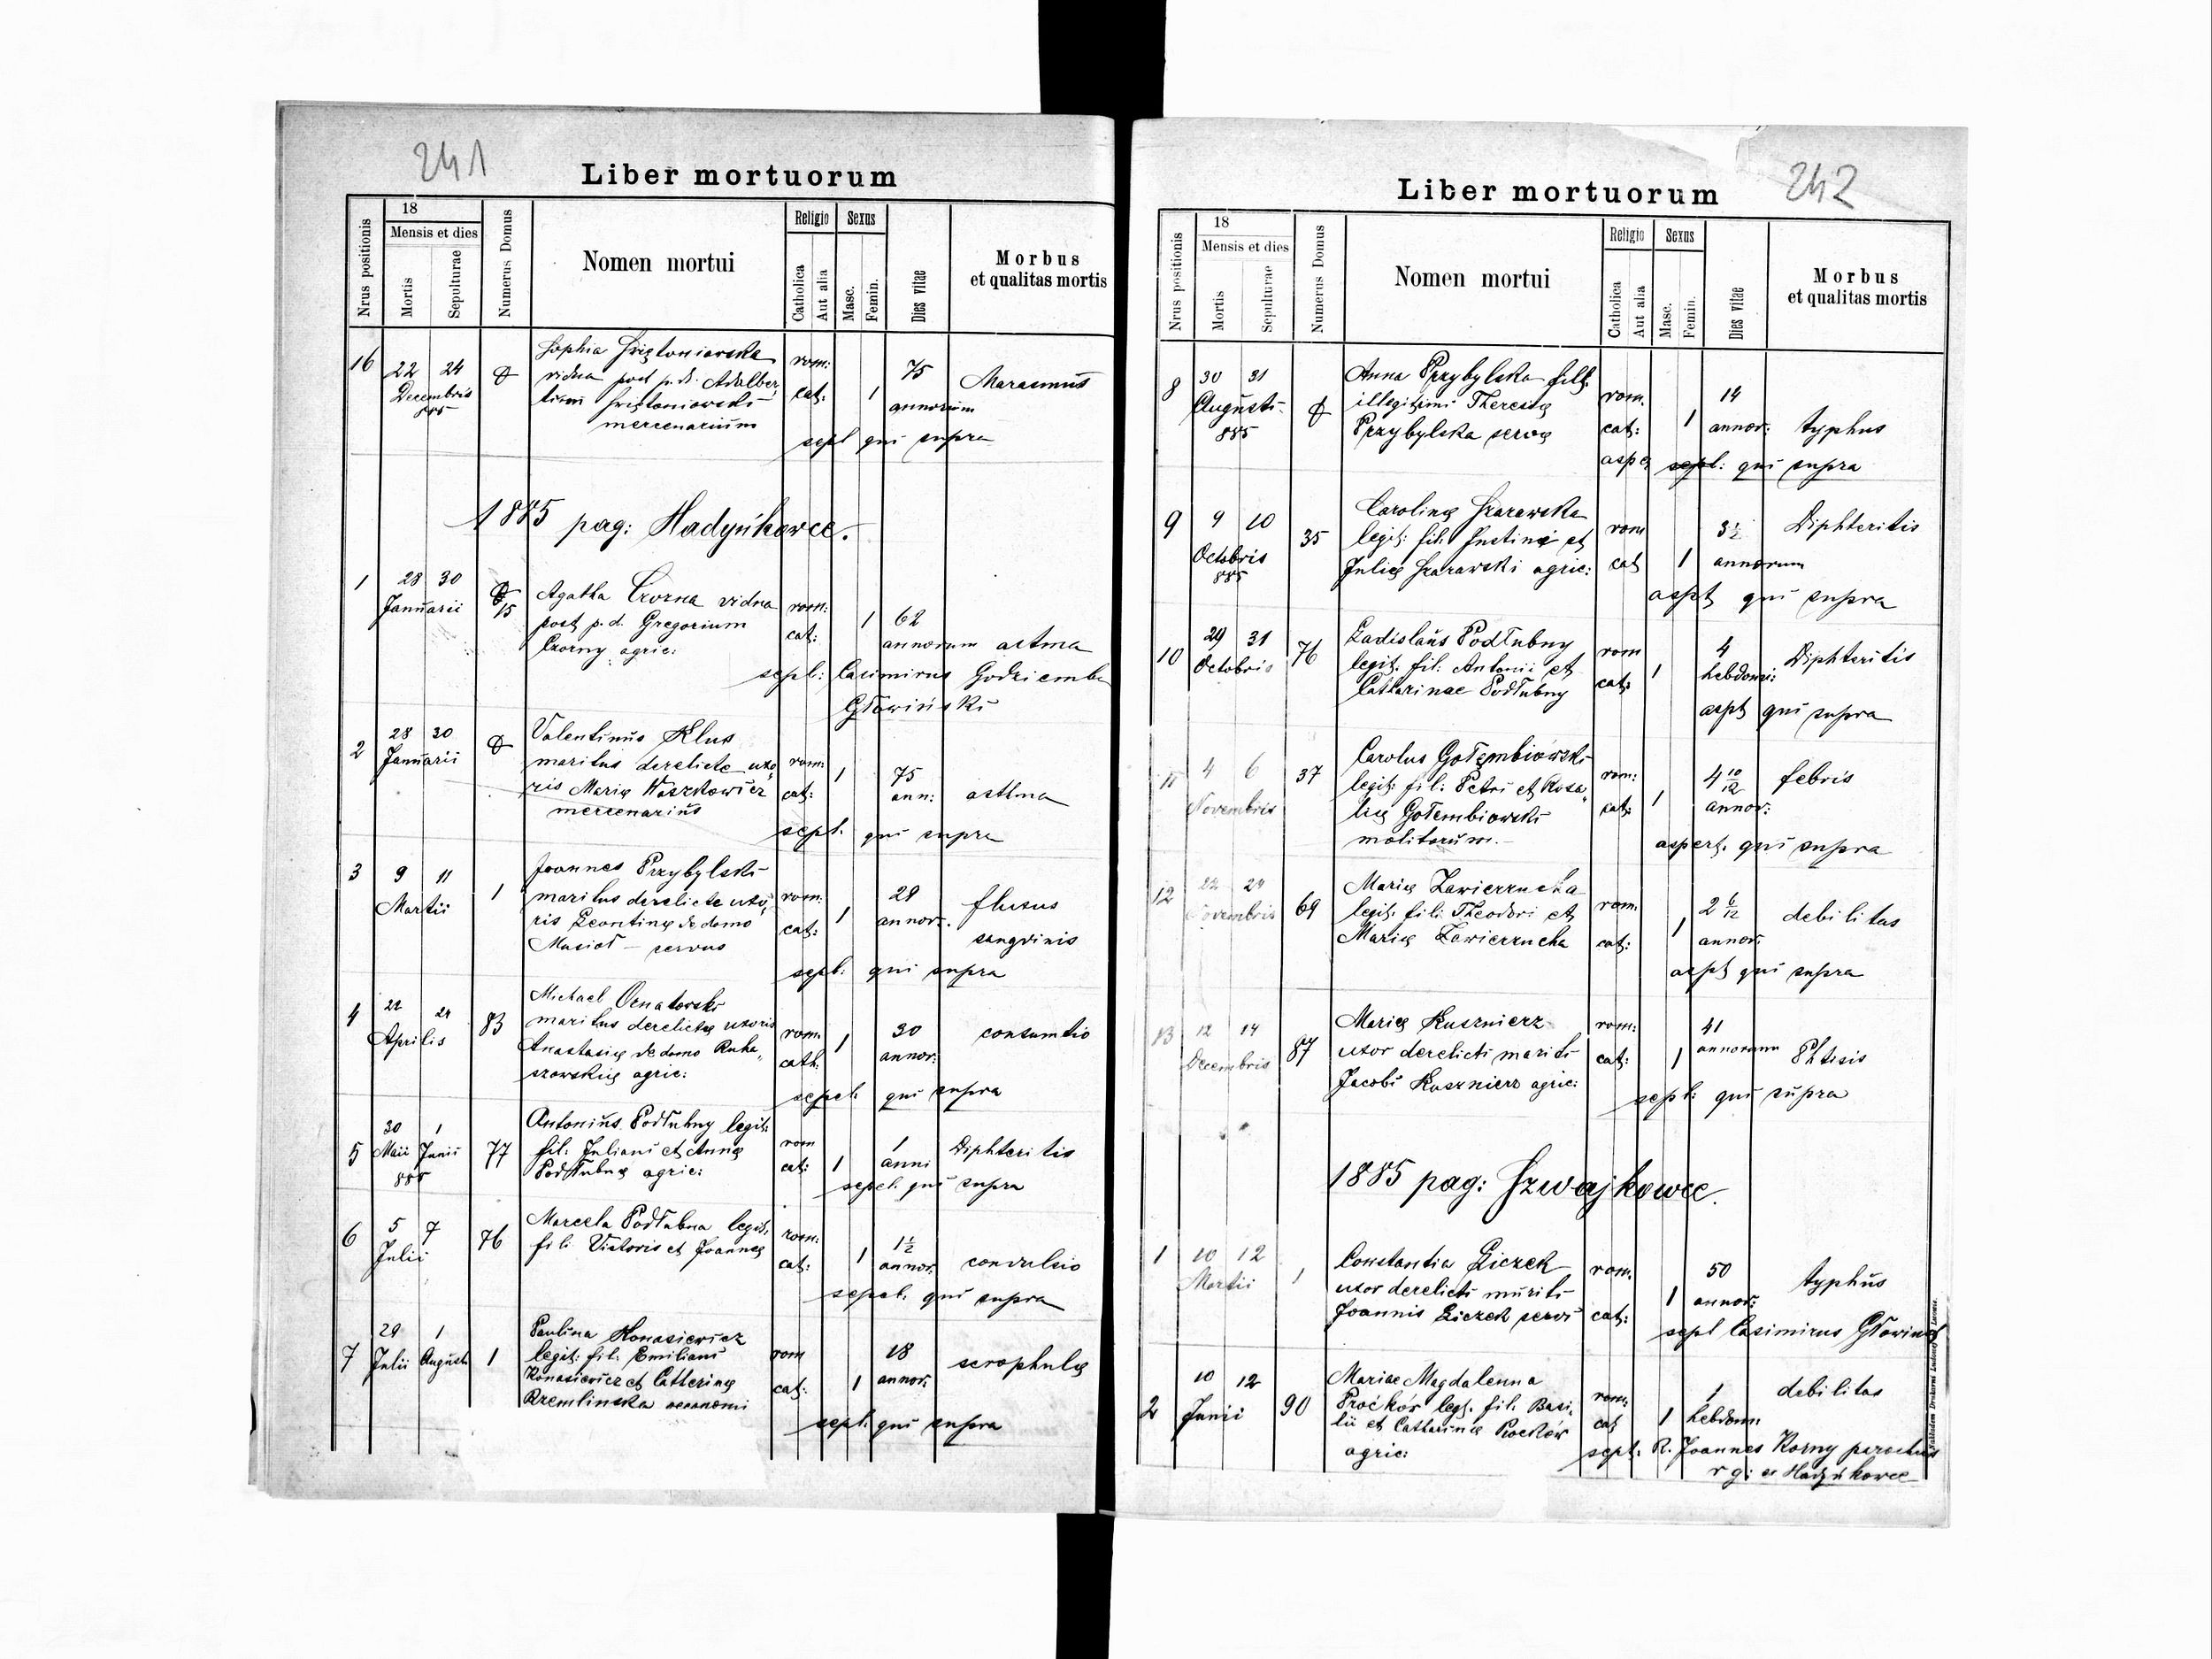 241
Liber mortuorum
Nrus positionis
18
Mensis et dies
Mortis
Sepulturae
Numerus Domus
Nomen mortui
Religio
Catholica
Aut alia
Sexus
Masc.
Femin.
Dies vitae
Morbus
et qualitas mortis
16 22 24 Sophia rom: 75 Marasmus
Decembris vidua post p. d. Adalber
885 cat: 1 annorum
mercenarium
sepl qui supra
1885 pag: Hadyńkowce.
1 28 30 15 Agatha Czorna vidua rom: 1 62
Januarii post p. d. Gregorium cat: annorum astma
Czorny agric:
sepl: Casimirus Godziemba
Głowiński
2 28 30 Valentinus Klus
Januarii maritus derelicte uxo rom: 1 75
ris Marię Waszkowicz cat: ann: asthma
mercenarius
sept. qui supra
3 9 11 1 Joannes Przybylski
Martii maritus derelicte uxo rom: 1 28 fluxus
ris Leontinę de domo cat: annor. sangvinis
Musioł – servus
sepl: qui supra
4 22 24 83 Michael Ornatowski
Aprilis maritus derelictę uxoris rom: 1 30 consumtio
Anastasię de domo Ruha cath: annor:
szowskię agric:
sepel: qui supra
5 30 1 77 Antonius Podłubny legit:
Maii Junii fil: Juliani et Annę rom 1 Diphteritis
885 Podłubnę agric: cat: 1 anni
sepel: qui supra
6 5 7 76 Marcela Podłubna legit. rom: 1½
Julii fil: Victoris et Joannę cat: 1 annor: convulsio
sepel: qui supra
7 29 1 1 Paulina Konasiewicz
Julii Augusti legit: fil: Emiliani rom 18 scrophulę
Konasiewicz et Catherinę cat: 1 annor:
Krzemlinska
sepl: qui supra
242
Liber mortuorum
Nrus positionis
18
Mensis et dies
Mortis
Sepulturae
Numerus Domus
Nomen mortui
Religio
Catholica
Aut alia
Sexus
Masc.
Femin.
Dies vitae
Morbus
et qualitas mortis
8 30 31 Anna Przybylska
Augusti illegitimi Theresię rom. 14
885 Przybylska servę cat: 1 annor: typhus
sepl: qui supra
9 9 10 35 Carolinę rom 3½ Diphteritis
Octobris legit: fil: Justini et cat 1 annorum
885 Julię agric:
aspt qui supra
10 29 31 76 Ladislaus Podłubny rom 4 Diphteritis
Octobris legit. fil: Antonii et cat: 1 hebdom:
Catharinae Podłubny
aspt qui supra
11 4 6 37 Carolus Gołembiowski
Novembris legit: fil: Petri et Rosa rom: 1 4 10/12 febris
lię Gołembiowski cat: annor:
molitorum.
aspert. qui supra
12 22 24 69 Marię Zawierzucha
Novembris legit. fil: Theodori et rom: 2 6/12 debilitas
Marię Zawierzucha cat: 1 annor:
aspt qui supra
13 12 14 87 Marię Kusznierz rom: 41
Decembris uxor derelicti mariti cat: 1 annorum Phtisis
Jacobi Kusznierz agric:
sepl: qui supra
1885 pag: Szwajkowce.
1 10 12 1 Constantia Liczek rom. 50 typhus
Martii uxor derelicti mariti 1 annor:
Joannis Liczek servi cat:
sepl Casimirus
2 10 12 90 Mariae Magdalenna rom: 1 debilitas
Junii Proćków legt. fil: Basi cat 1 hebdom:
lii et Catharinę Proćków
agric: sept: R. Joannes Korny parochus
r g: ex Hadyńkowce